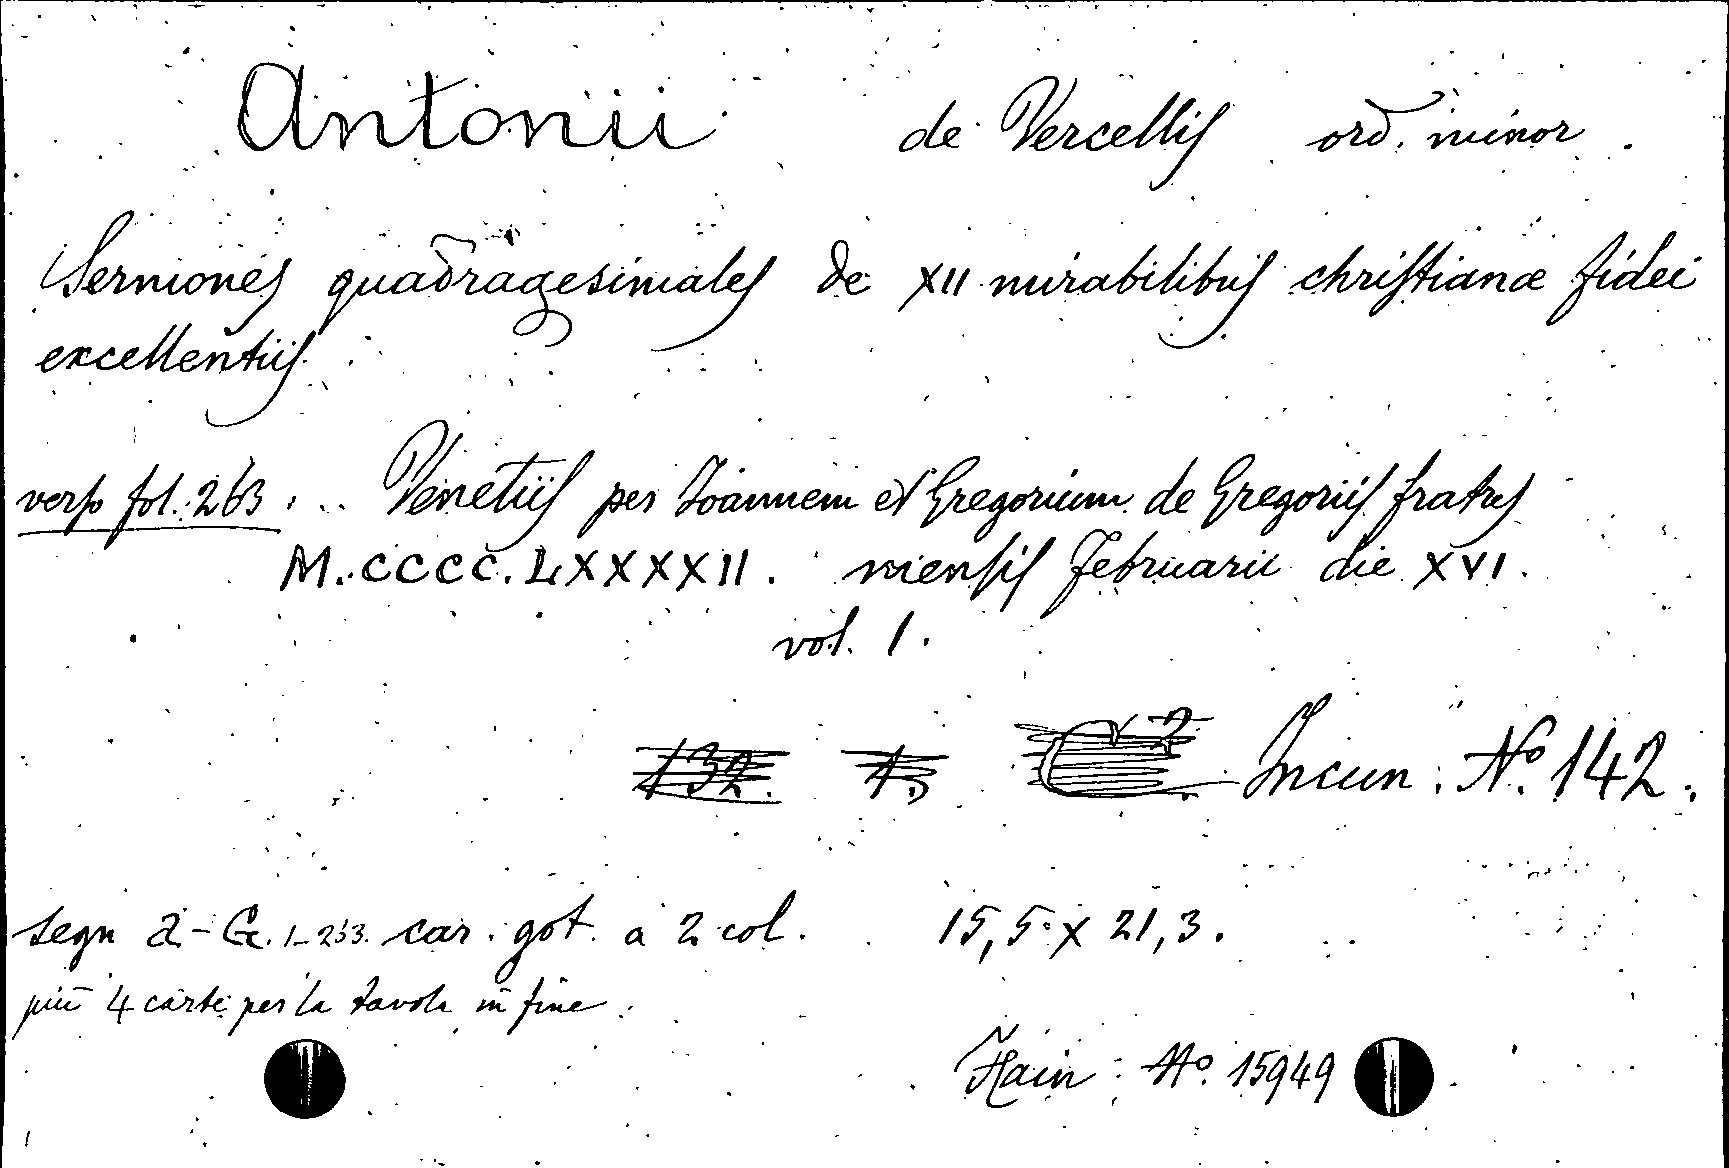 Antonii de Vercellis ord. minor.
Sermones quadragesimales de XII mirabilibus christianæ fidei
excellentiis.
verso fol. 263. .. Venetiis per Ioannem et Gregorium de Gregoriis fratres
M.CCCC.LXXXXII. mensis Februarii die XVI.
vol. 1.
132. Incun. Nº 142.
segn a-G. 1-253. car. got. a 2 col. 15,5 x 21,3.
più 4 carte per la tavola in fine.
Hain: Nº 15949